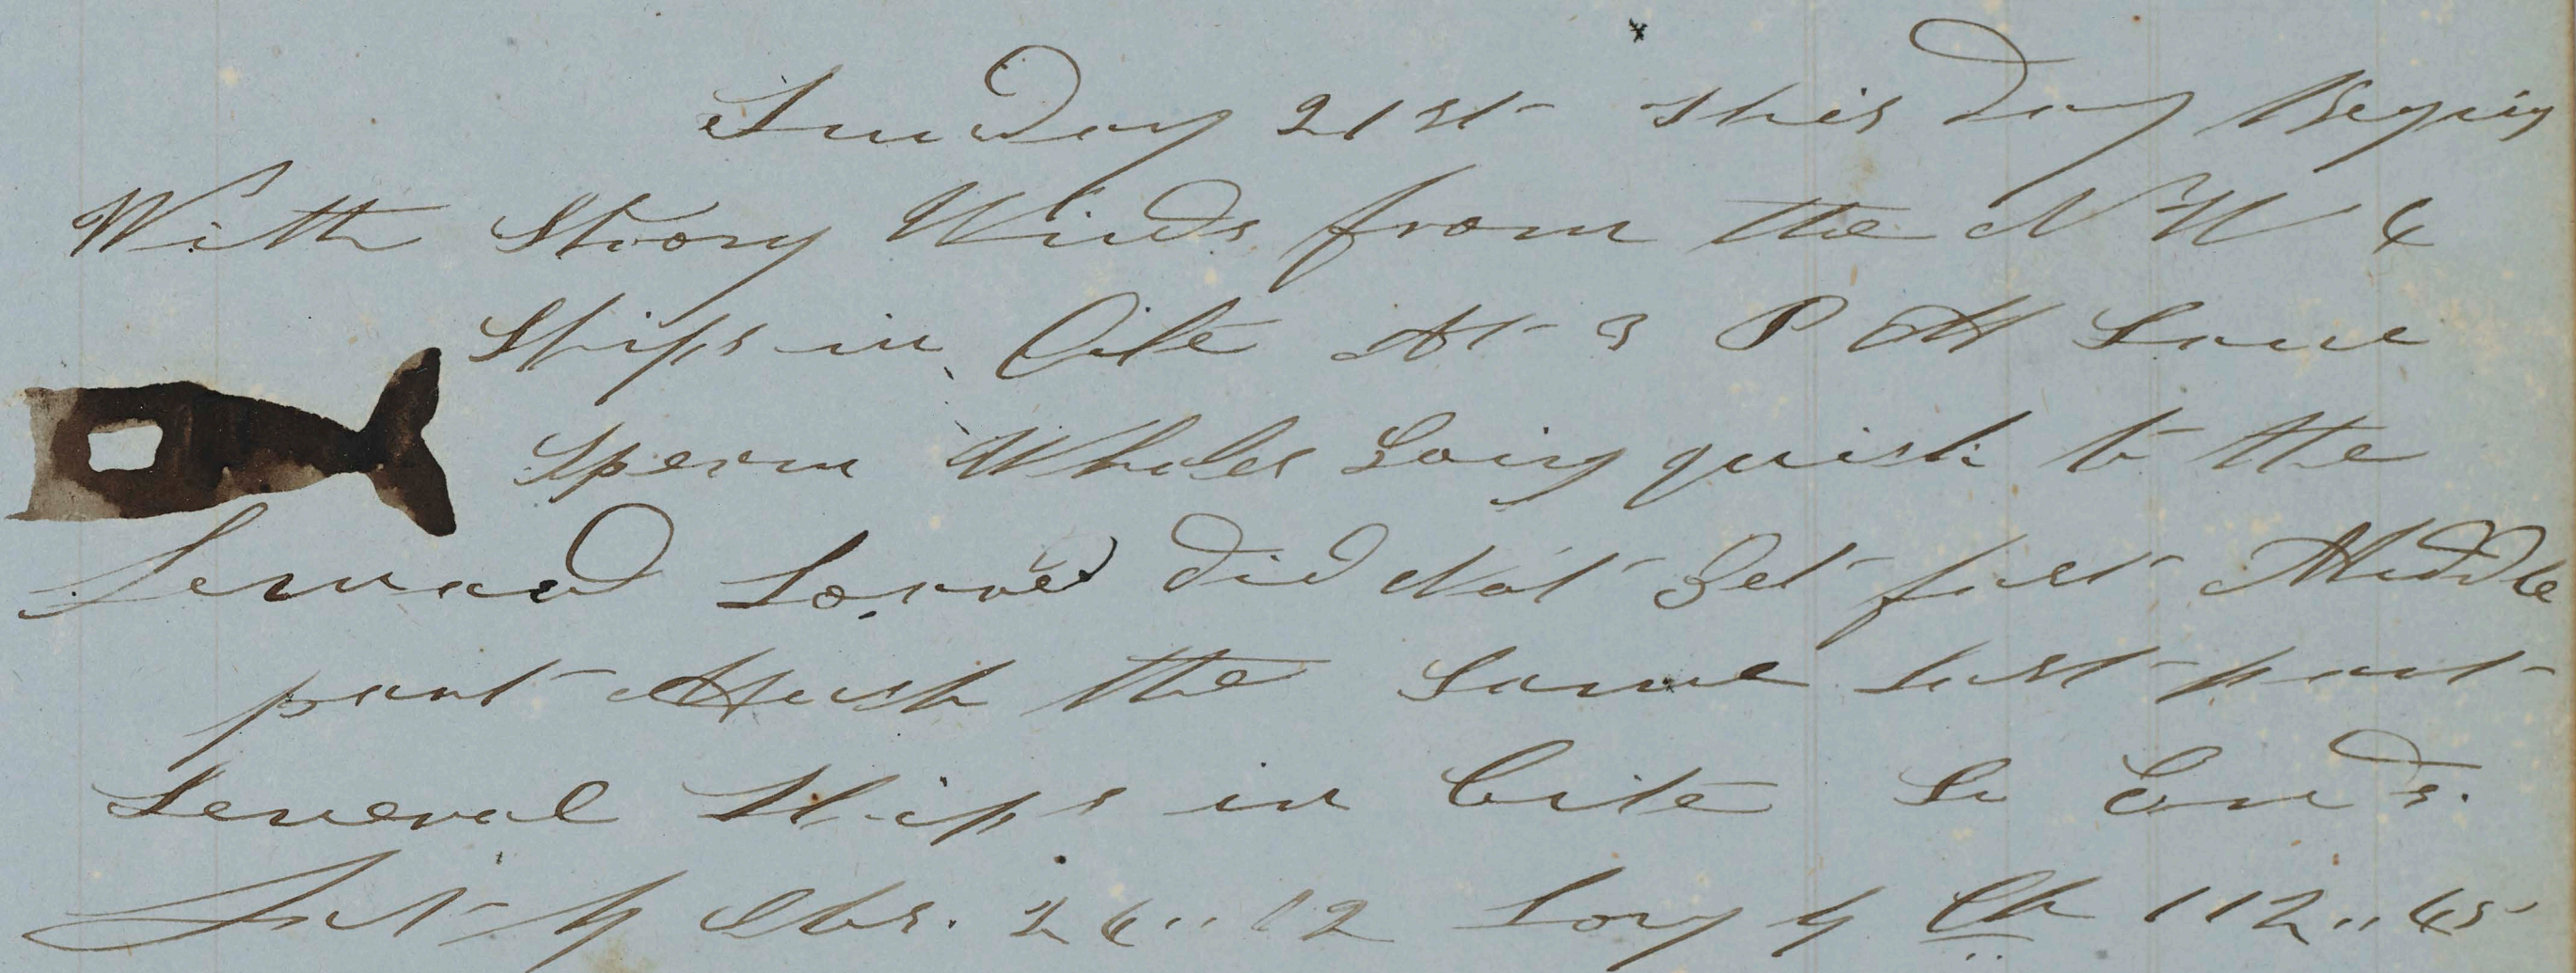 Sunday 21st this Day Begins
With Strong Winds from the N W 4
Ships in Cite At 3 P M Saw
Sperm Whales Going quick to the
Leward Lowred did Not Get fast Middle
part Much the Same Last part
Several Ships in Cite So Ends.
Lat by Obs. 26,, 12 Long by Ch 112,, 45